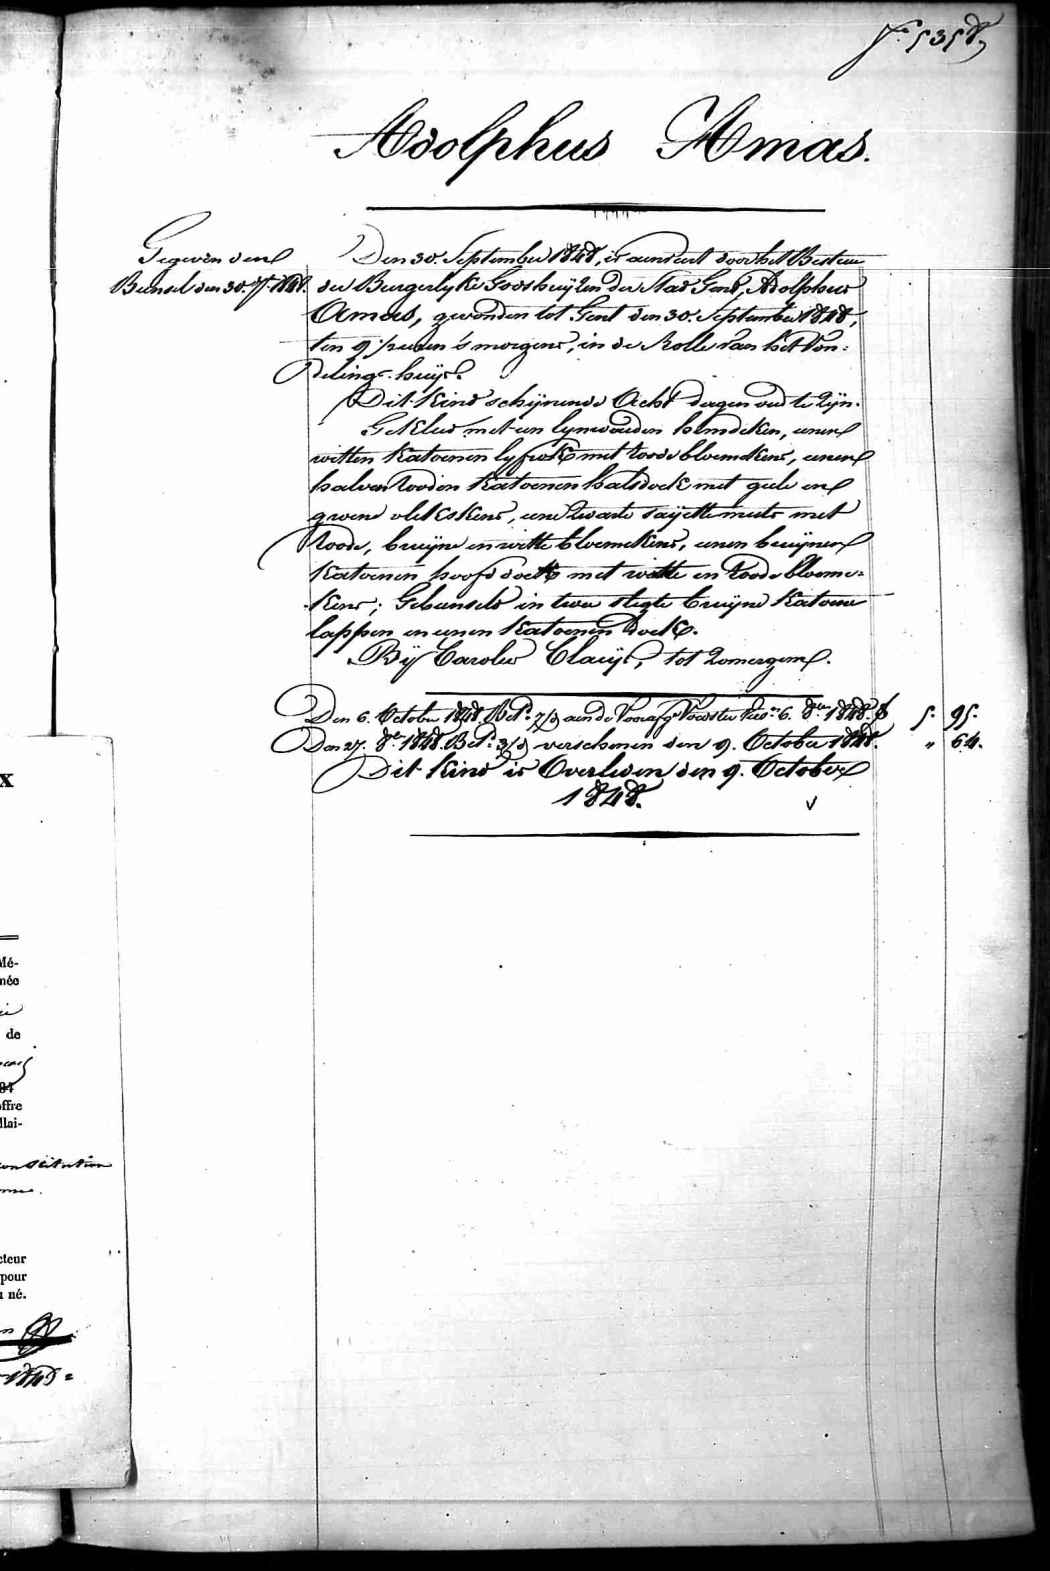 Fº 5358,
Adolphus Amas.
Gegeven den
Bunsel den 30. 7. 1848.
Den 30. September 1848, is aenveert door het Bestuer
der Burgerlyke Godshuyzen der Stad Gend, Adolphus
Amas, gevonden tot Gent den 30. September 1848,
ten 9 ½ 's morgens, in de Rolle van het Von:
delings-huys.
Dit Kind schijnende Acht dagen oud te zijn.
Gekleed met een lynwaeden hemdeken, eenen
witten Katoenen lyfrok met roode bloemekens, eenen
halven rooden Katoenen halsdoek met geele en
groene vlekskens, eene zwarte sayette muts met
roode, bruijne en witte bloemekens, eenen bruijnen
Katoenen hoofddoek met witte en roode bloeme-
kens; Gebunseld in twee slegte bruijne Katoene
lappen en eenen Katoenen Doek.
Bij Carolus Claeijs, tot Zomergem.
Den 6. October 1848. Bet. 7/d aen de 6. 8ber 1848. 5. 95.
Den 27. 8ber 1848. Bet. 3/d verschenen den 9. October 1848. " 64.
Dit Kind is Overleden den 9. October
1848. v
x
Mé-
née
de
84
offre
llai-
onstitution
cteur
pour
né.
1848=